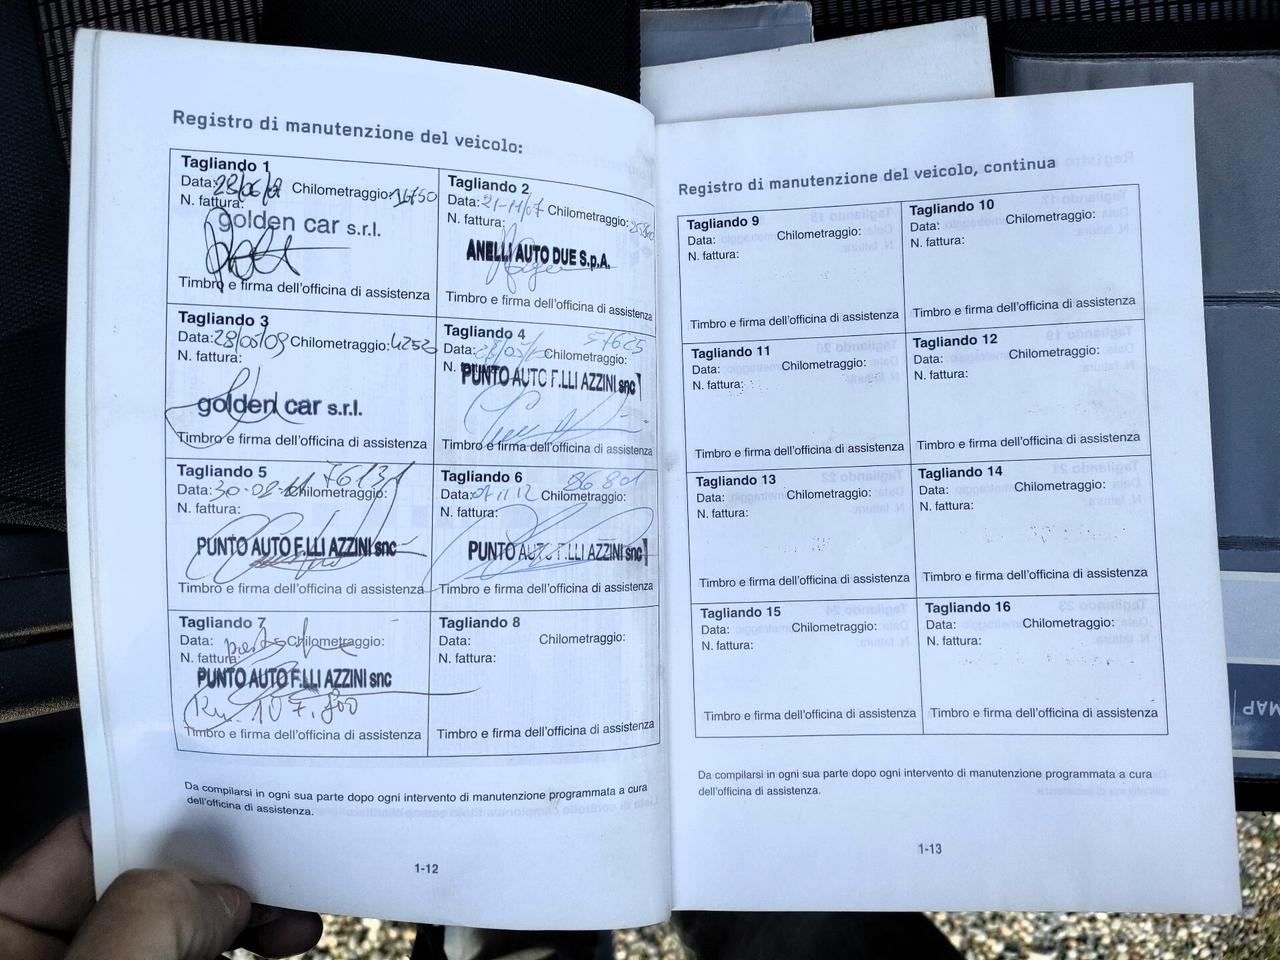 Registro di manutenzione del veicolo:
Tagliando 1
Data: 28/06/ Chilometraggio:
N. fattura:
golden car s.r.l.
Timbro e firma dell'officina di assistenza
Tagliando 2
Data: 21-11/07 Chilometraggio:
N. fattura:
ANELLI AUTO DUE S.p.A.
Timbro e firma dell'officina di assistenza
Tagliando 3
Data: 28/05/09 Chilometraggio:
N. fattura:
golden car s.r.l.
Timbro e firma dell'officina di assistenza
Tagliando 4
57625
Data: Chilometraggio:
N.
PUNTO AUTO F.LLI AZZINI snc
Timbro e firma dell'officina di assistenza
Tagliando 5
76131
Data: 30-08- Chilometraggio:
N. fattura:
PUNTO AUTO F.LLI AZZINI snc
Timbro e firma dell'officina di assistenza
Tagliando 6
Data: 11 12 Chilometraggio:
N. fattura:
PUNTO AUTO F.LLI AZZINI snc
Timbro e firma dell'officina di assistenza
Tagliando 7
Data: Chilometraggio:
N. fattura:
PUNTO AUTO F.LLI AZZINI snc
Km. 107.800
Timbro e firma dell'officina di assistenza
Tagliando 8
Data: Chilometraggio:
N. fattura:
Timbro e firma dell'officina di assistenza
Da compilarsi in ogni sua parte dopo ogni intervento di manutenzione programmata a cura
dell'officina di assistenza.
1-12
Registro di manutenzione del veicolo, continua
Tagliando 9
Data: Chilometraggio:
N. fattura:
Timbro e firma dell'officina di assistenza
Tagliando 10
Data: Chilometraggio:
N. fattura:
Timbro e firma dell'officina di assistenza
Tagliando 11
Data: Chilometraggio:
N. fattura:
Timbro e firma dell'officina di assistenza
Tagliando 12
Data: Chilometraggio:
N. fattura:
Timbro e firma dell'officina di assistenza
Tagliando 13
Data: Chilometraggio:
N. fattura:
Timbro e firma dell'officina di assistenza
Tagliando 14
Data: Chilometraggio:
N. fattura:
Timbro e firma dell'officina di assistenza
Tagliando 15
Data: Chilometraggio:
N. fattura:
Timbro e firma dell'officina di assistenza
Tagliando 16
Data: Chilometraggio:
N. fattura:
Timbro e firma dell'officina di assistenza
Da compilarsi in ogni sua parte dopo ogni intervento di manutenzione programmata a cura
dell'officina di assistenza.
1-13
MAP